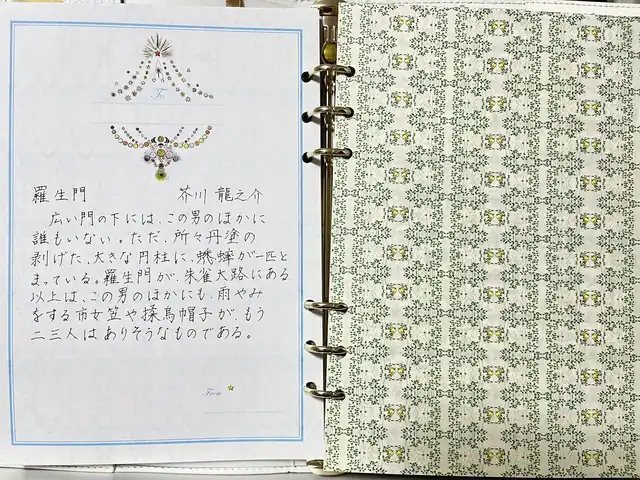 To
羅生門 芥川 龍之介
広い門の下には、この男のほかに
誰もいない。ただ、所々丹塗の
剥げた、大きな円柱に、蟋蟀が一匹と
まっている。羅生門が、朱雀大路にある
以上は、この男のほかにも、雨やみ
をする市女笠や揉烏帽子が、もう
二三人はありそうなものである。
From